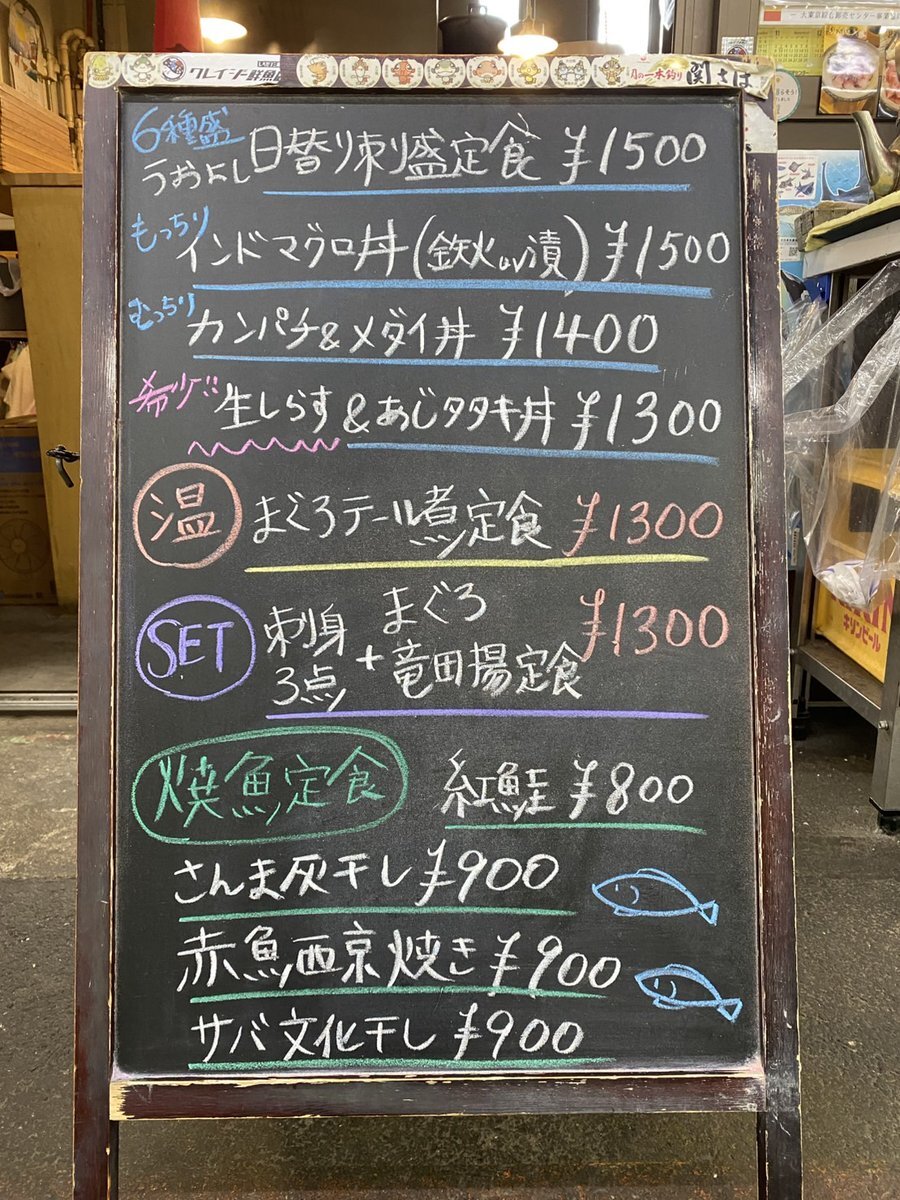 クレイジー鮮魚店
月の一本釣り 関さば
6種盛
うおよし日替り刺し盛定食 ¥1500
もっちり
インドマグロ丼(鉄火or漬) ¥1500
むっちり
カンパチ&メダイ丼 ¥1400
希少
生しらす&あじタタキ丼 ¥1300
温 まぐろテール煮定食 ¥1300
SET 刺身3点+まぐろ竜田揚定食 ¥1300
焼魚定食 紅鮭 ¥800
さんま灰干し ¥900
赤魚西京焼き ¥900
サバ文化干し ¥900
キリンビール